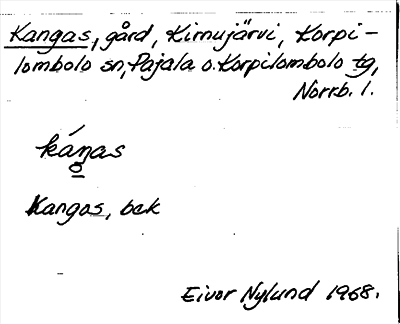 Kangas, gård, Kirnujärvi, Korpi-
lombolo sn, Pajala o. Korpilombolo tg,
Norrb. l.
káŋas
Kangas, bak
Eivor Nylund 1968.